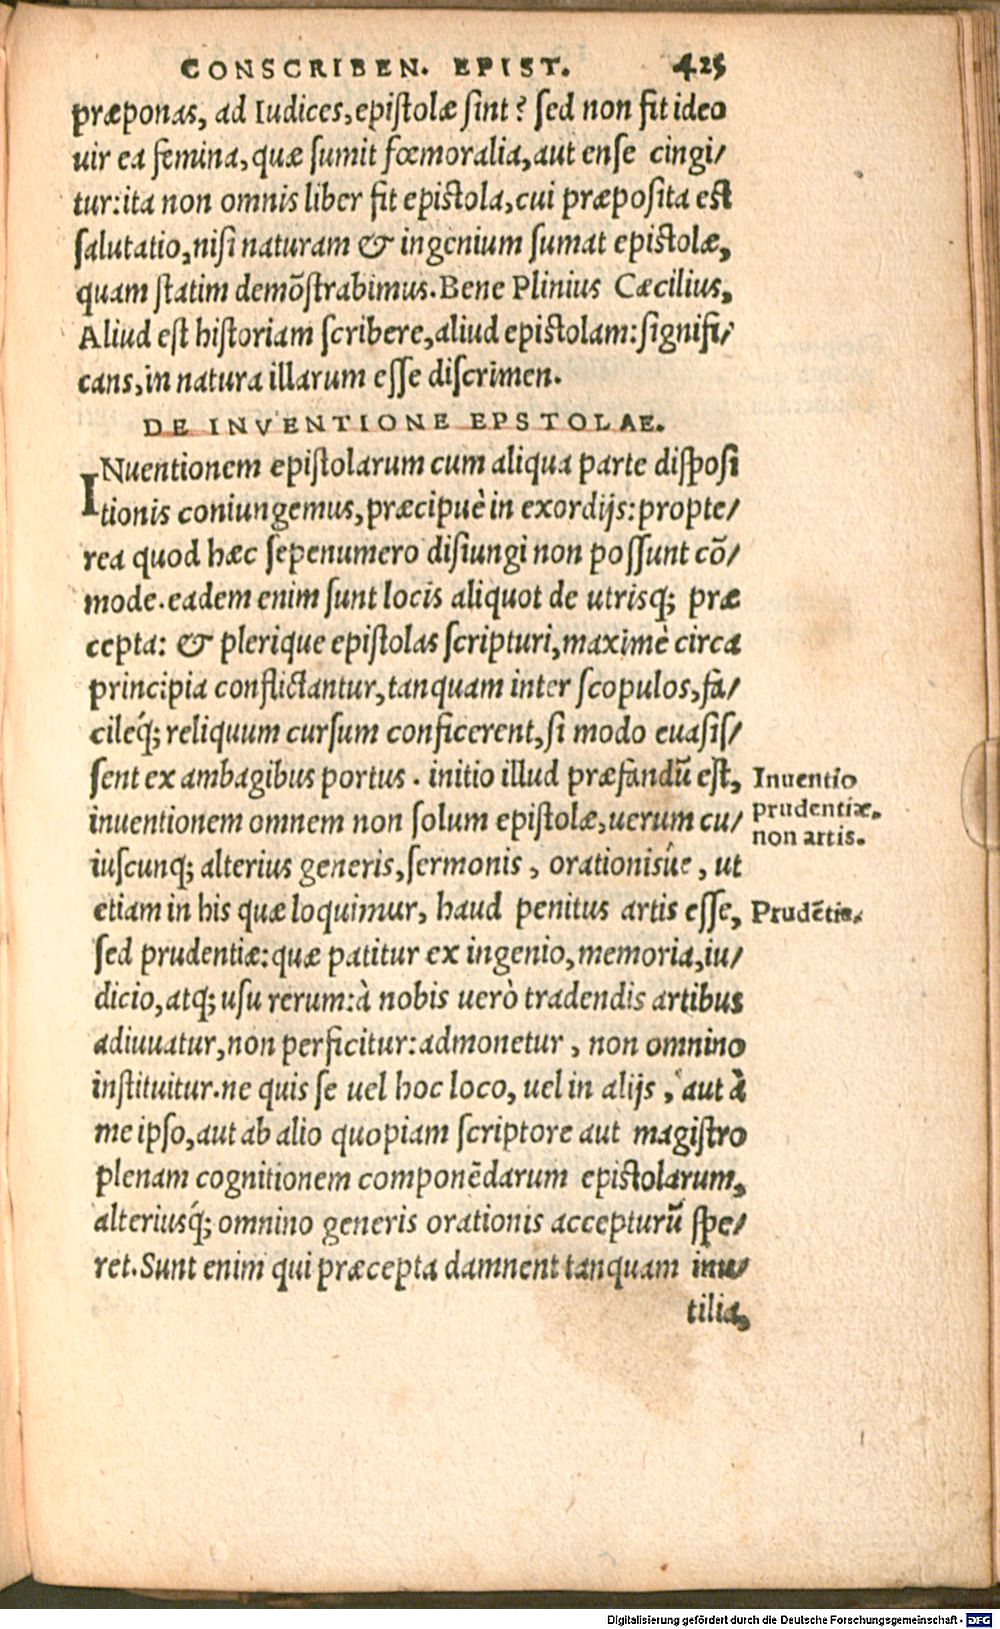 CONSCRIBEN. EPIST. 425
præponas, ad Iudices, epistolæ sint? sed non fit ideo
uir ea femina, quæ sumit fœmoralia, aut ense cingi/
tur: ita non omnis liber fit epistola, cui præposita est
salutatio, nisi naturam & ingenium sumat epistolæ,
quam statim demõstrabimus. Bene Plinius Cæcilius,
Aliud est historiam scribere, aliud epistolam: signifi/
cans, in natura illarum esse discrimen.
DE INVENTIONE EPSTOLAE.
INuentionem epistolarum cum aliqua parte disposi
tionis coniungemus, præcipuè in exordijs: propte/
rea quod hæc sepenumero disiungi non possunt cõ/
mode. eadem enim sunt locis aliquot de utrisq; præ
cepta: & plerique epistolas scripturi, maximè circa
principia conflictantur, tanquam inter scopulos, fa/
cileq́; reliquum cursum conficerent, si modo euasis/
sent ex ambagibus portus. initio illud præfandũ est,
Inuentio
prudentiæ.
non artis.
inuentionem omnem non solum epistolæ, uerum cu/
iuscunq; alterius generis, sermonis, orationisúe, ut
etiam in his quæ loquimur, haud penitus artis esse,
Prudẽtia.
sed prudentiæ: quæ patitur ex ingenio, memoria, iu/
dicio, atq; usu rerum: à nobis uerò tradendis artibus
adiuuatur, non perficitur: admonetur, non omnino
instituitur. ne quis se uel hoc loco, uel in alijs, aut à
me ipso, aut ab alio quopiam scriptore aut magistro
plenam cognitionem componẽdarum epistolarum,
alteriusq́; omnino generis orationis accepturũ spe/
ret. Sunt enim qui præcepta damnent tanquam inu/
tilia,
Digitalisierung gefördert durch die Deutsche Forschungsgemeinschaft - DFG